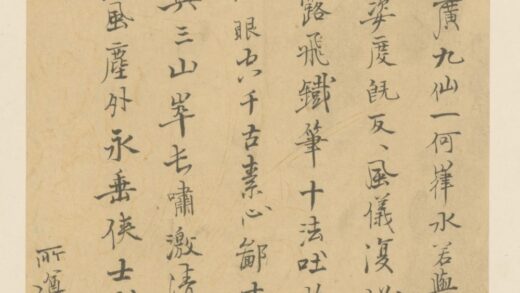 廣九仙一何水若與
姿度既反、風儀復
路飛鐵筆十法
眼空千古素心鄙
三山長嘯激清
風塵外永垂俠士
所